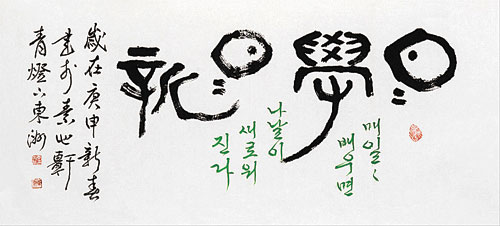 日〻學日〻新
매일〻
배우면
나날이
새로워
진다
歲在庚申新春
書於素心軒
青燈下東洲